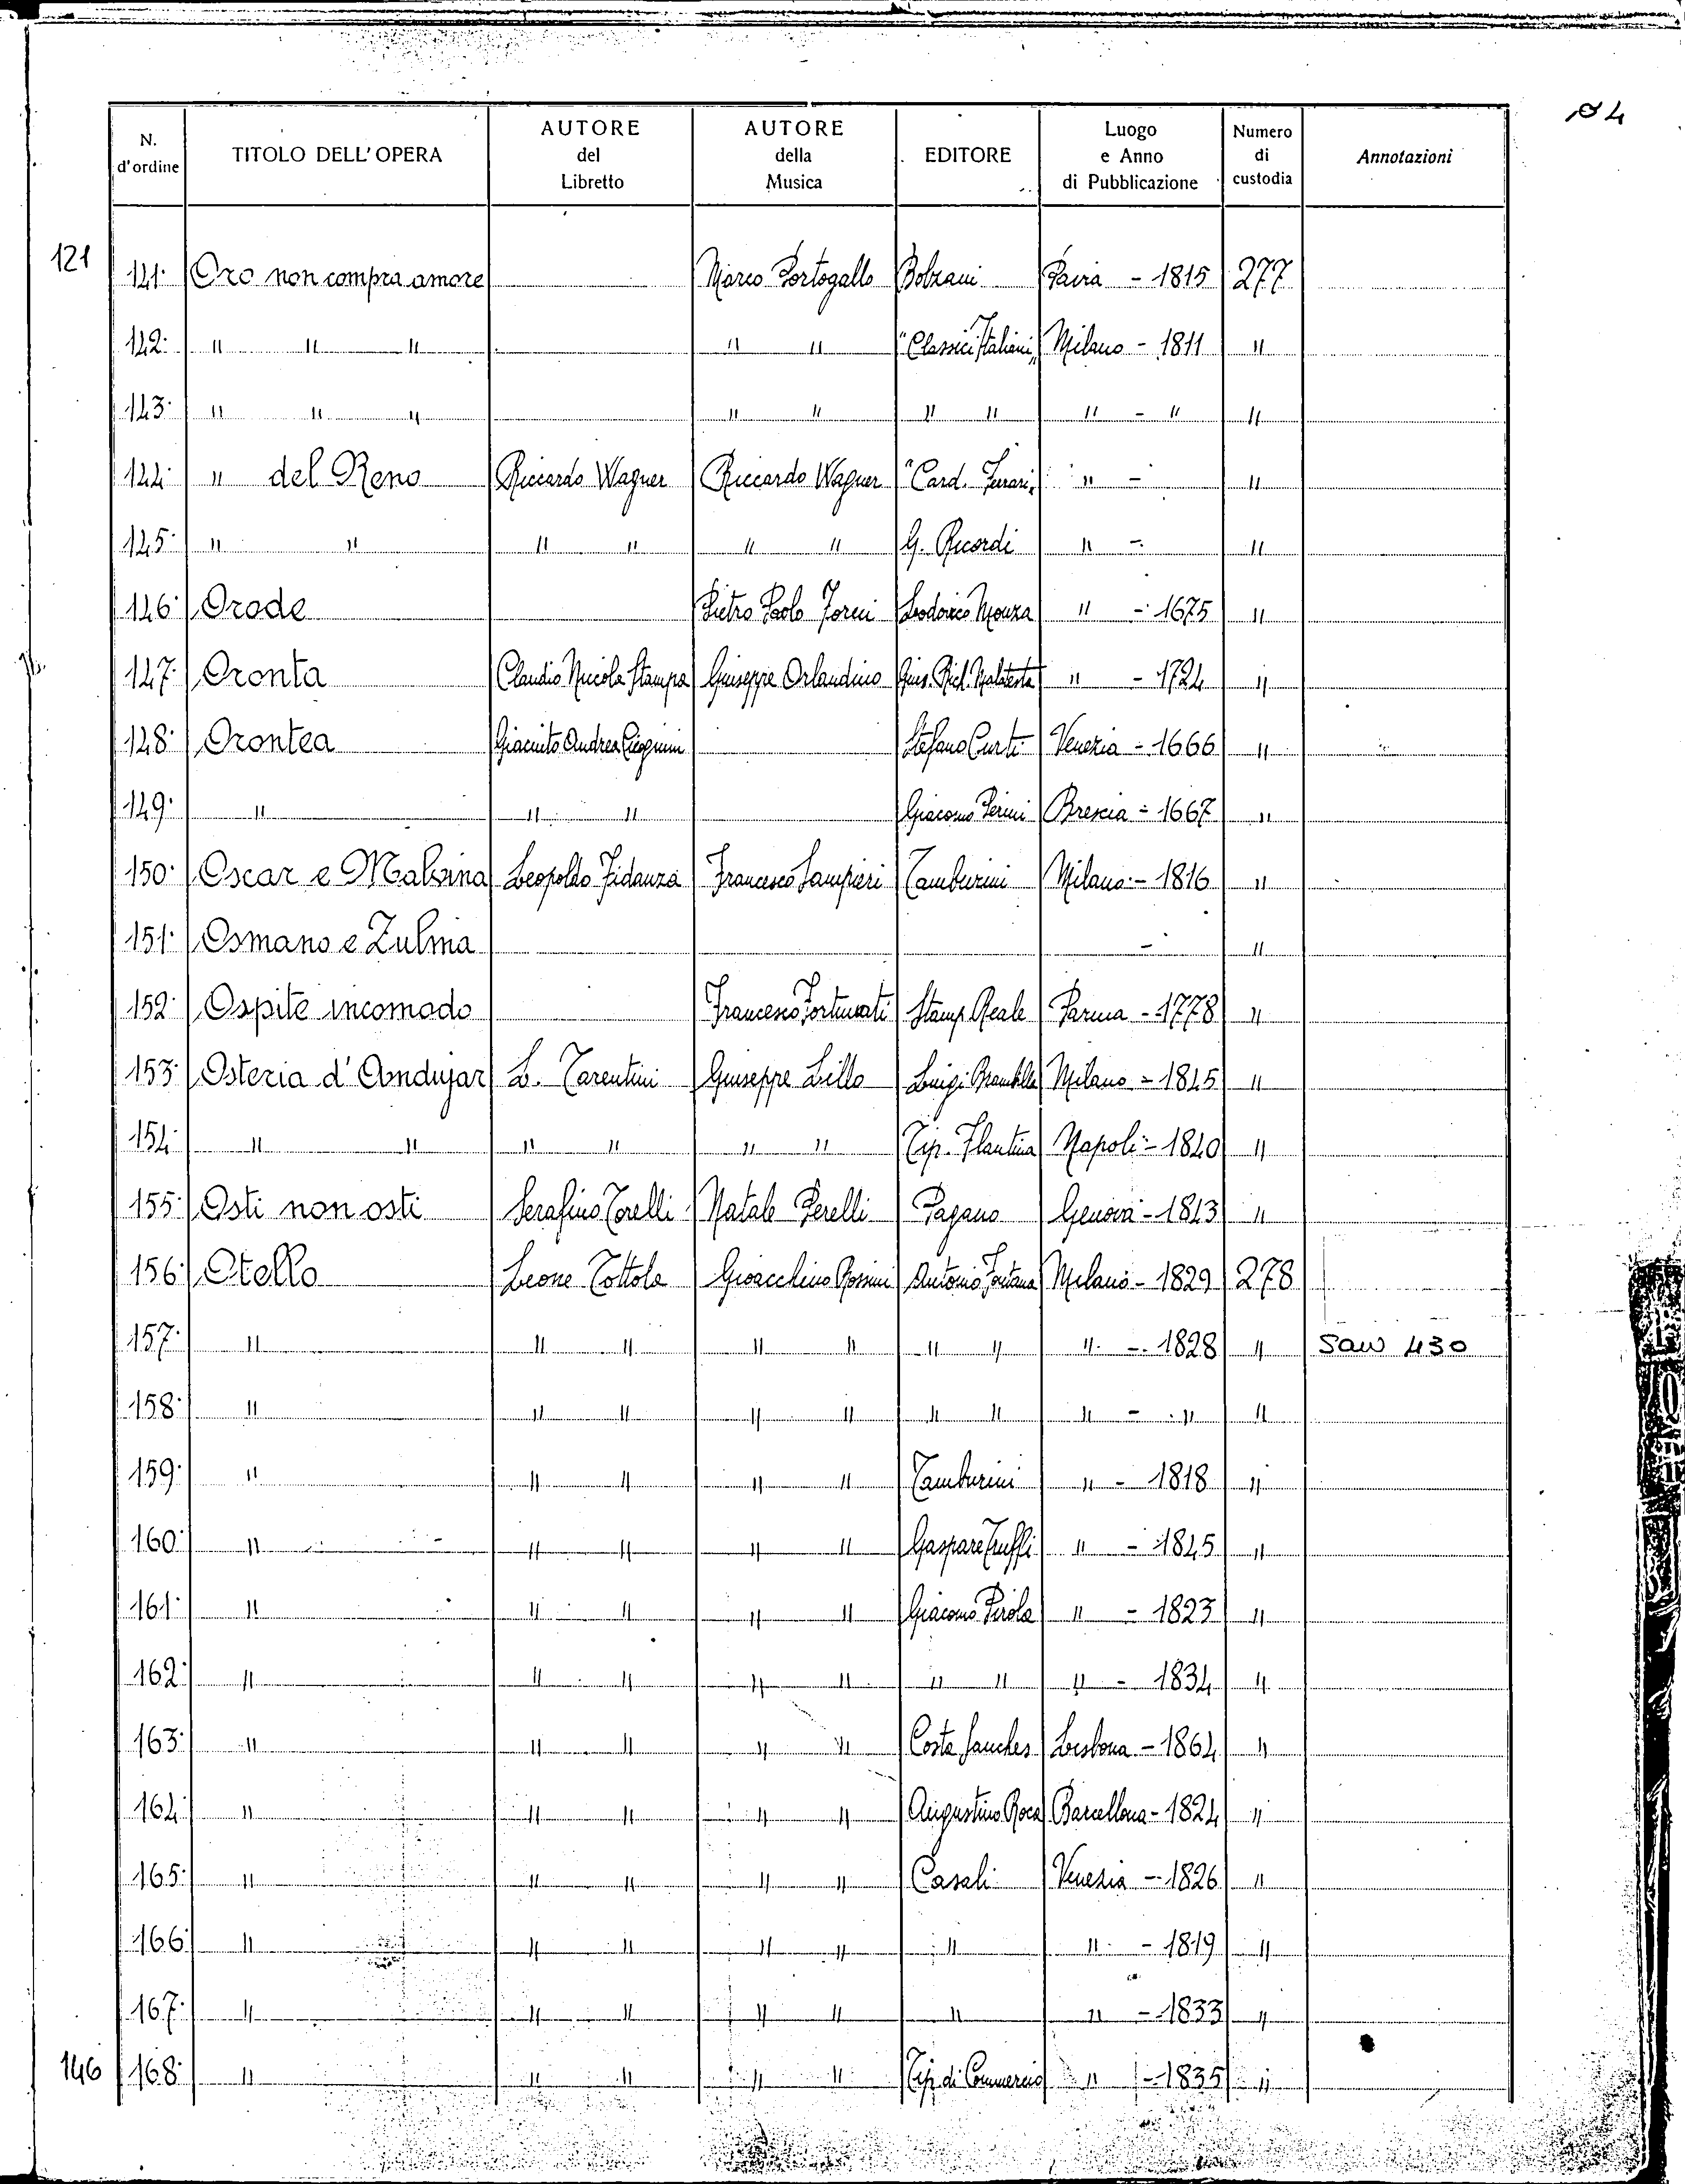 104
N. d'ordine | TITOLO DELL'OPERA | AUTORE del Libretto | AUTORE della Musica | EDITORE | Luogo e Anno di Pubblicazione | Numero di custodia | Annotazioni
121
141. | Oro non compra amore | | Marco Portogallo | Bolzani | Pavia - 1815 | 277 |
142. | " " " | | " " | "Classici Italiani" | Milano - 1811 | " |
143. | " " " | | " " | " " | " - " | " |
144. | " del Reno | Riccardo Wagner | Riccardo Wagner | "Card. Ferrari" | " - | " |
145. | " " | " " | " " | G. Ricordi | " - | " |
146. | Orode | | Pietro Paolo Forni | Lodovico Monza | " - 1675 | " |
147. | Oronta | Claudio Niccola Stampa | Giuseppe Orlandino | Gius. Rich. Malatesta | " - 1724 | " |
148. | Orontea | Giacinto Andrea Cicognini | | Stefano Curti | Venezia - 1666 | " |
149. | " | " " | | Giacomo Perini | Brescia - 1667 | " |
150. | Oscar e Malvina | Leopoldo Fidanza | Francesco Sampieri | Tamburini | Milano - 1816 | " |
151. | Osmano e Zulma | | | | - | " |
152. | Ospite incomodo | | Francesco Fortunati | Stamp. Reale | Parma - 1778 | " |
153. | Osteria d'Andujar | L. Tarentini | Giuseppe Lillo | Luigi Brambilla | Milano - 1845 | " |
154. | " " | " " | " " | Tip. Flautina | Napoli - 1840 | " |
155. | Osti non osti | Serafino Torelli | Natale Perelli | Pagano | Genova - 1843 | " |
156. | Otello | Leone Tottola | Gioacchino Rossini | Antonio Fontana | Milano - 1829 | 278 |
157. | " | " " | " " | " " | " - 1828 | " | Saw 430
158. | " | " " | " " | " " | " - " | " |
159. | " | " " | " " | Tamburini | " - 1818 | " |
160. | " | " " | " " | Gaspare Truffi | " - 1845 | " |
161. | " | " " | " " | Giacomo Pirola | " - 1823 | " |
162. | " | " " | " " | " " | " - 1834 | " |
163. | " | " " | " " | Costa Sanches | Lisbona - 1864 | " |
164. | " | " " | " " | Augustino Roca | Barcellona - 1824 | " |
165. | " | " " | " " | Casali | Venezia - 1826 | " |
166. | " | " " | " " | " | " - 1819 | " |
167. | " | " " | " " | " | " - 1833 | " |
146
168. | " | " " | " " | Tip. di Commercio | " - 1835 | " |